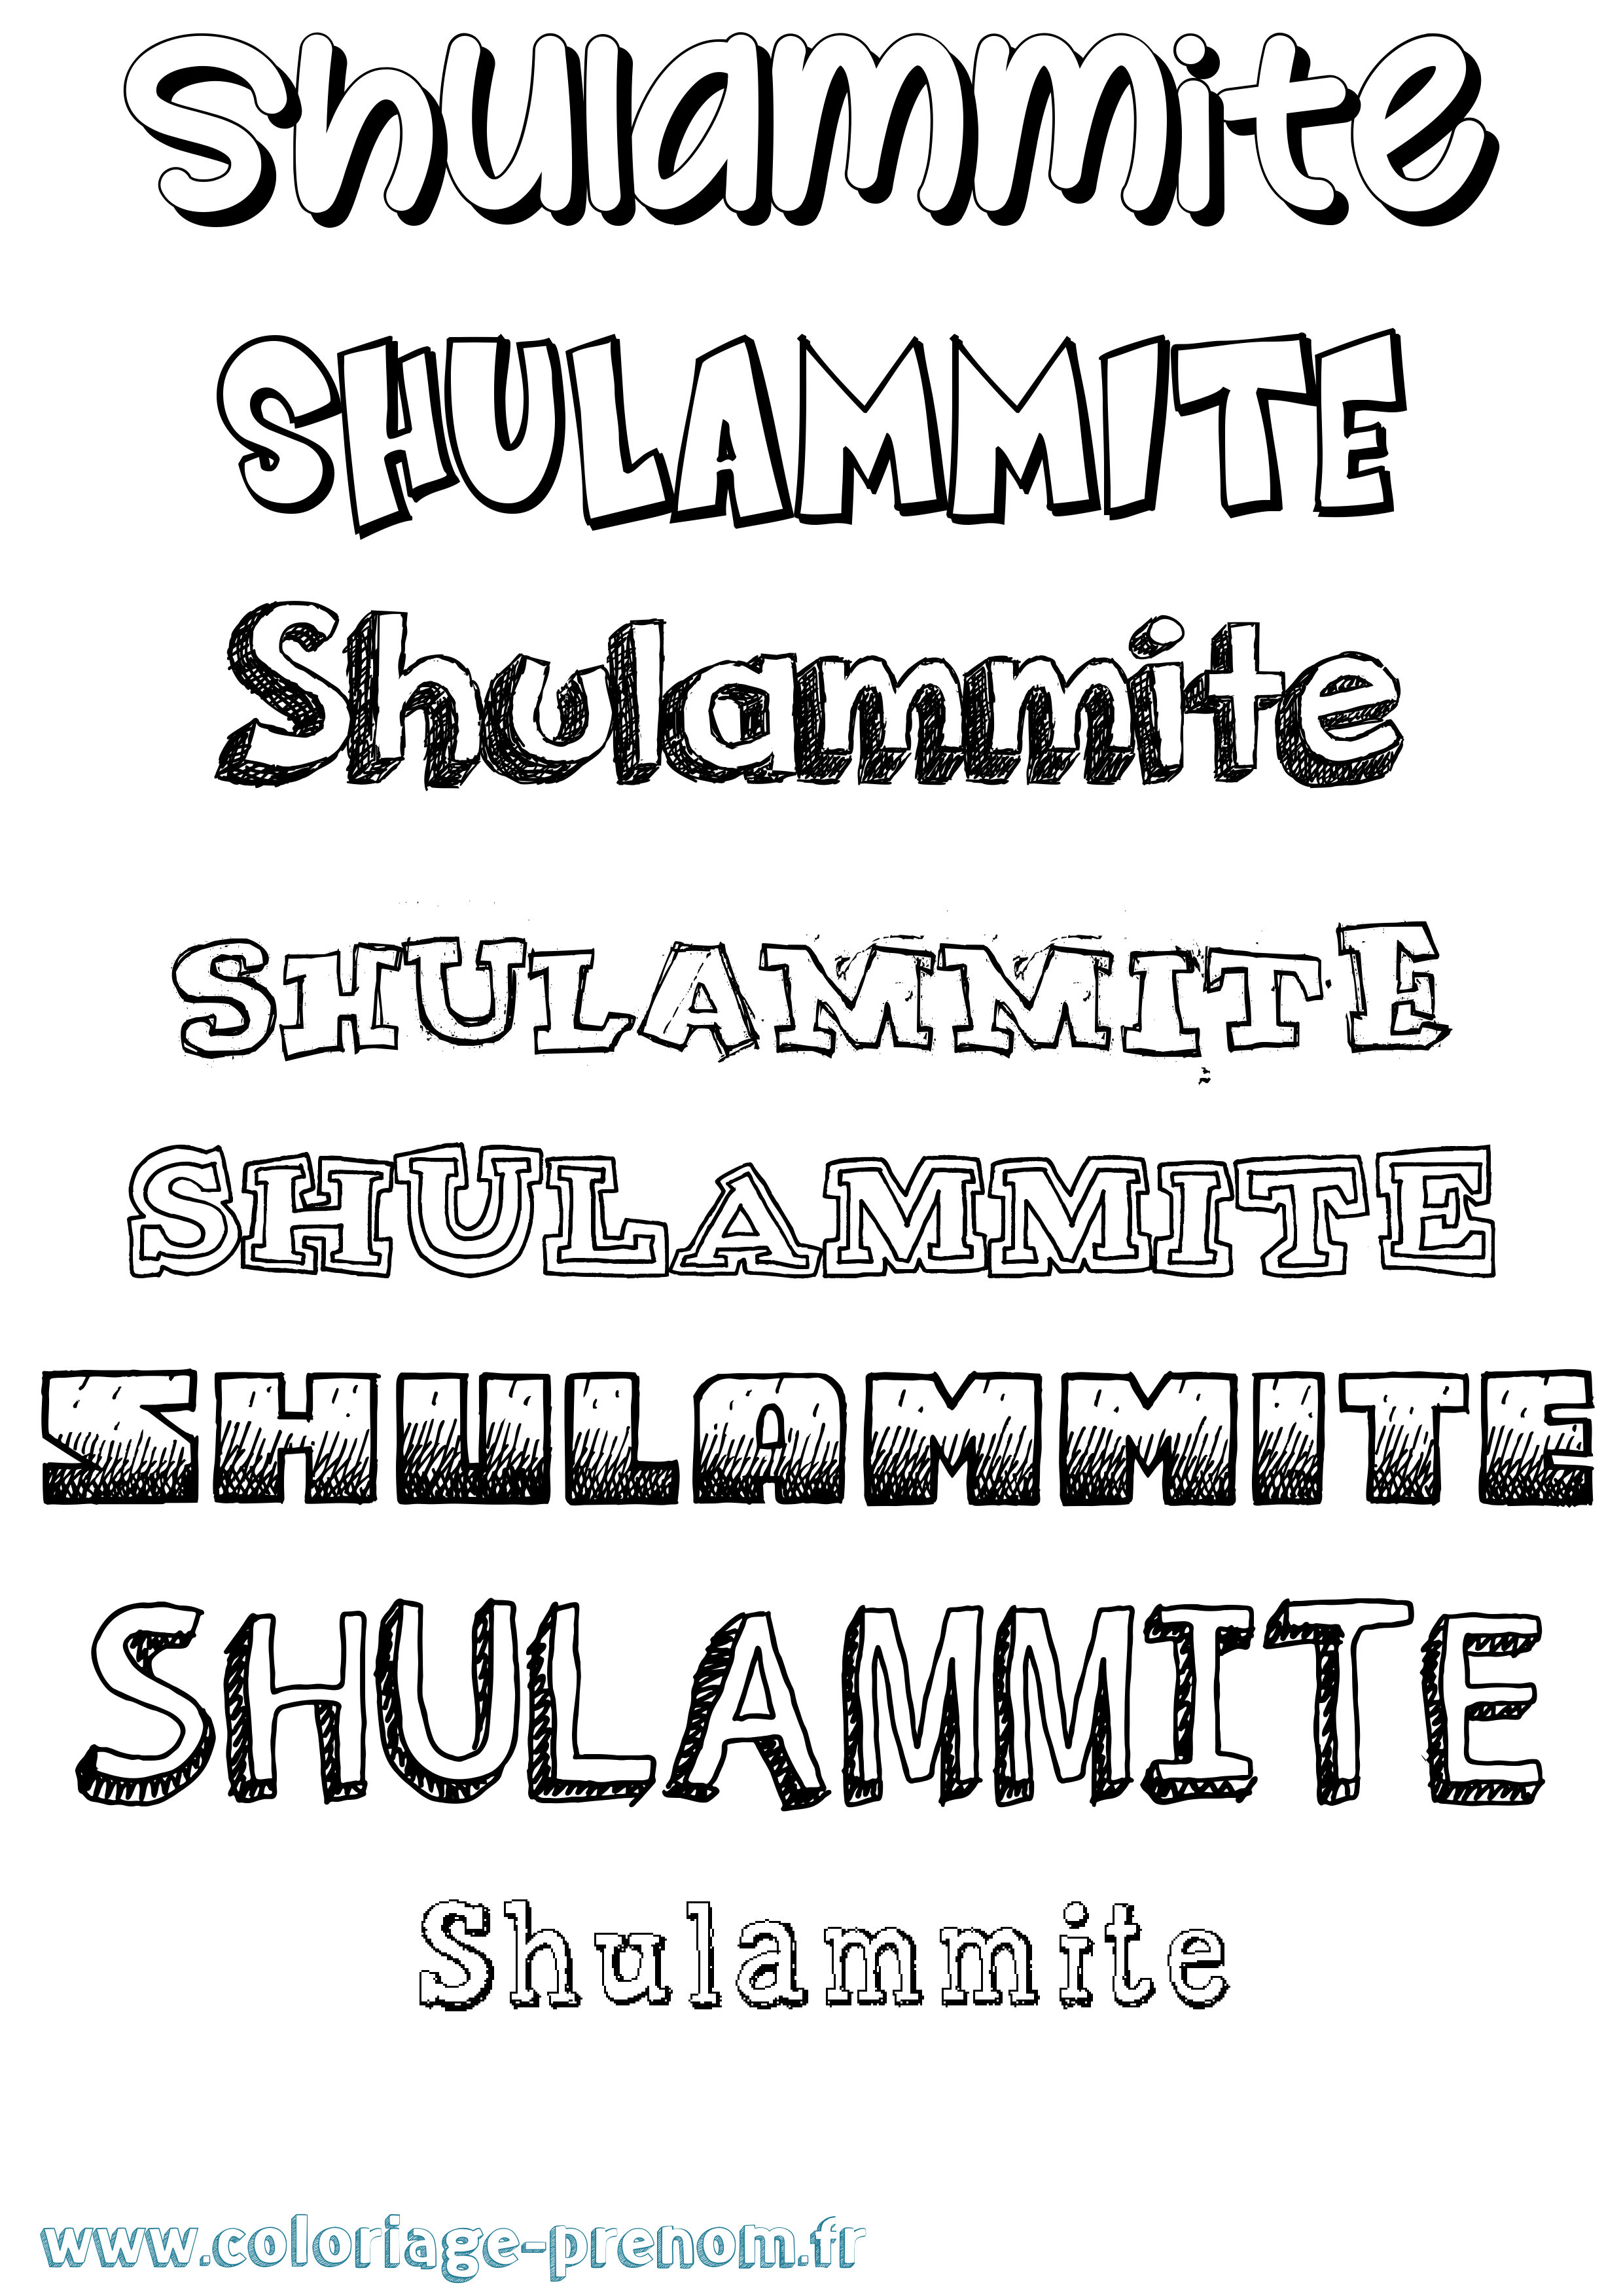 Shulammite
SHULAMMITE
Shulammite
SHULAMMITE
SHULAMMITE
SHULAMMITE
SHULAMMITE
Shulammite
www.coloriage-prenom.fr